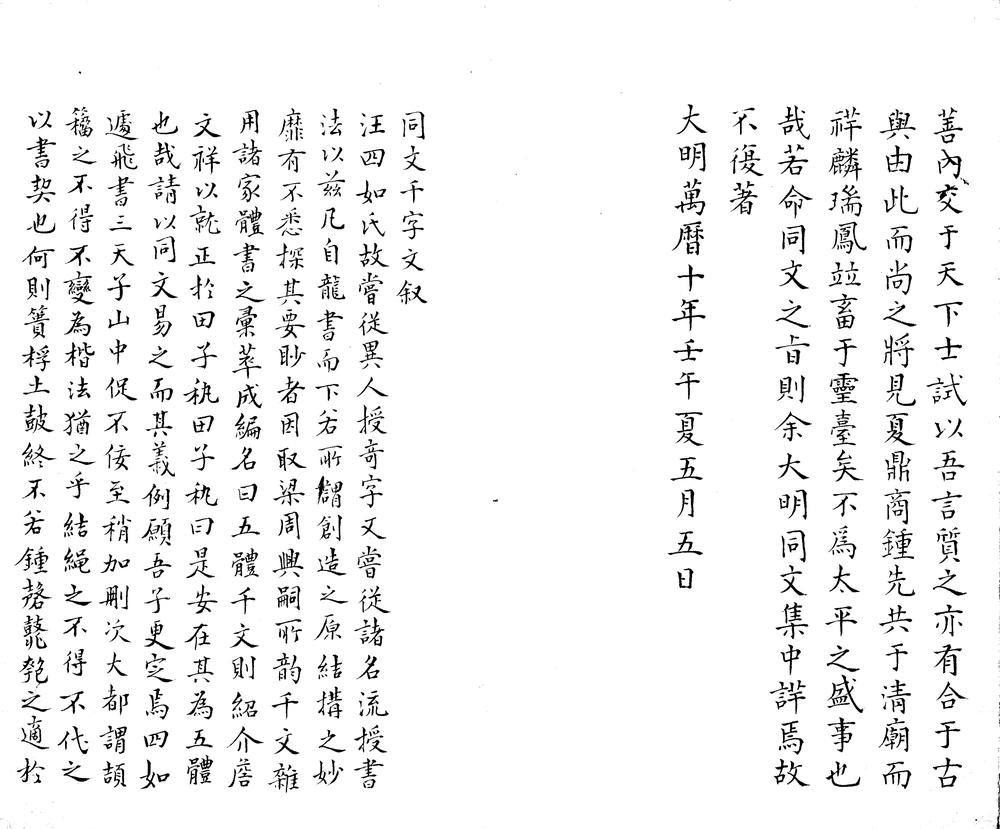 善內交于天下士試以吾言質之亦有合于古
與由此而尚之將見夏鼎商鍾先共于淸廟而
祥麟瑞鳳竝畜于靈臺矣不爲太平之盛事也
哉若命同文之旨則余大明同文集中詳焉故
不復著
大明萬曆十年壬午夏五月五日
同文千字文叙
汪四如氏故嘗從異人授奇字又嘗從諸名流授書
法以兹凡自龍書而下若所謂創造之原結搆之妙
靡有不悉探其要眇者因取梁周興嗣所韵千文雜
用諸家體書之彙萃成編名曰五體千文則紹介
文祥以就正於田子秇田子秇曰是安在其為五體
也哉請以同文易之而其義例願吾子更定焉四如
遽飛書三天子山中促不佞至稍加刪次大都謂頡
籒之不得不變為楷法猶之乎結繩之不得不代之
以書契也何則蕢桴土鼓終不若鍾磬之適於